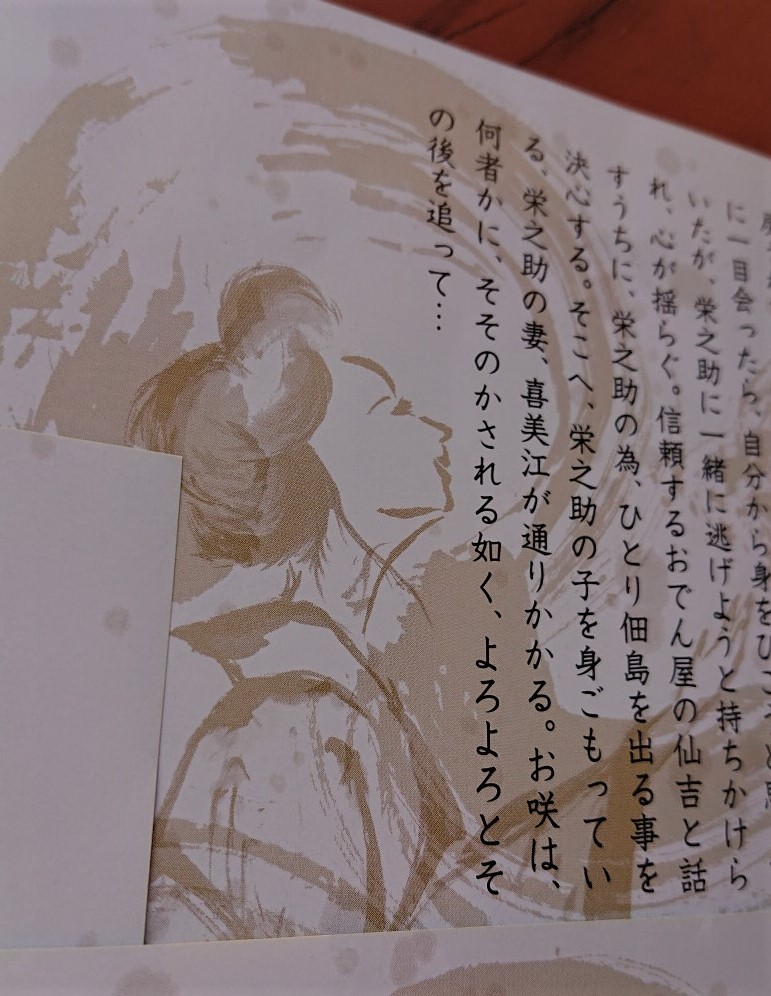 に一目会ったら、自分から身をひこうと思
いたが、栄之助に一緒に逃げようと持ちかけら
れ、心が揺らぐ。信頼するおでん屋の仙吉と話
すうちに、栄之助の為、ひとり佃島を出る事を
決心する。そこへ、栄之助の子を身ごもってい
る、栄之助の妻、喜美江が通りかかる。お咲は、
何者かに、そそのかされる如く、よろよろとそ
の後を追って…